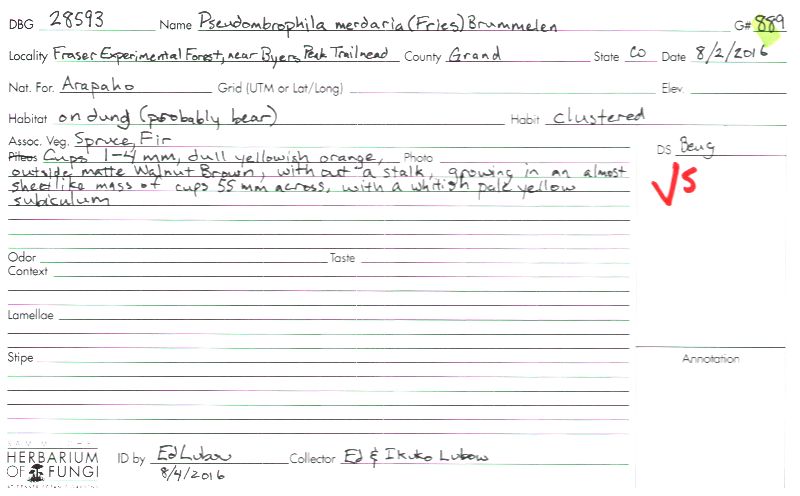 DBG 28593 Name Pseudombrophila merdaria (Fries) Brummelen G# 889
Locality Fraser Experimental Forest, near Byers Peak Trailhead County Grand State CO Date 8/2/2016
Nat. For. Arapaho Grid (UTM or Lat/Long) Elev.
Habitat on dung (probably bear) Habit clustered
Assoc. Veg. Spruce, Fir DS Beug
Pileus Cups 1-4 mm, dull yellowish orange, Photo
outside matte Walnut Brown, with out a stalk, growing in an almost
sheetlike mass of cups 55 mm across, with a whitish pale yellow
subiculum
√S
Odor Taste
Context
Lamellae
Stipe
Annotation
HERBARIUM OF FUNGI
ID by Ed Lubow Collector Ed & Ikuko Lubow
8/4/2016